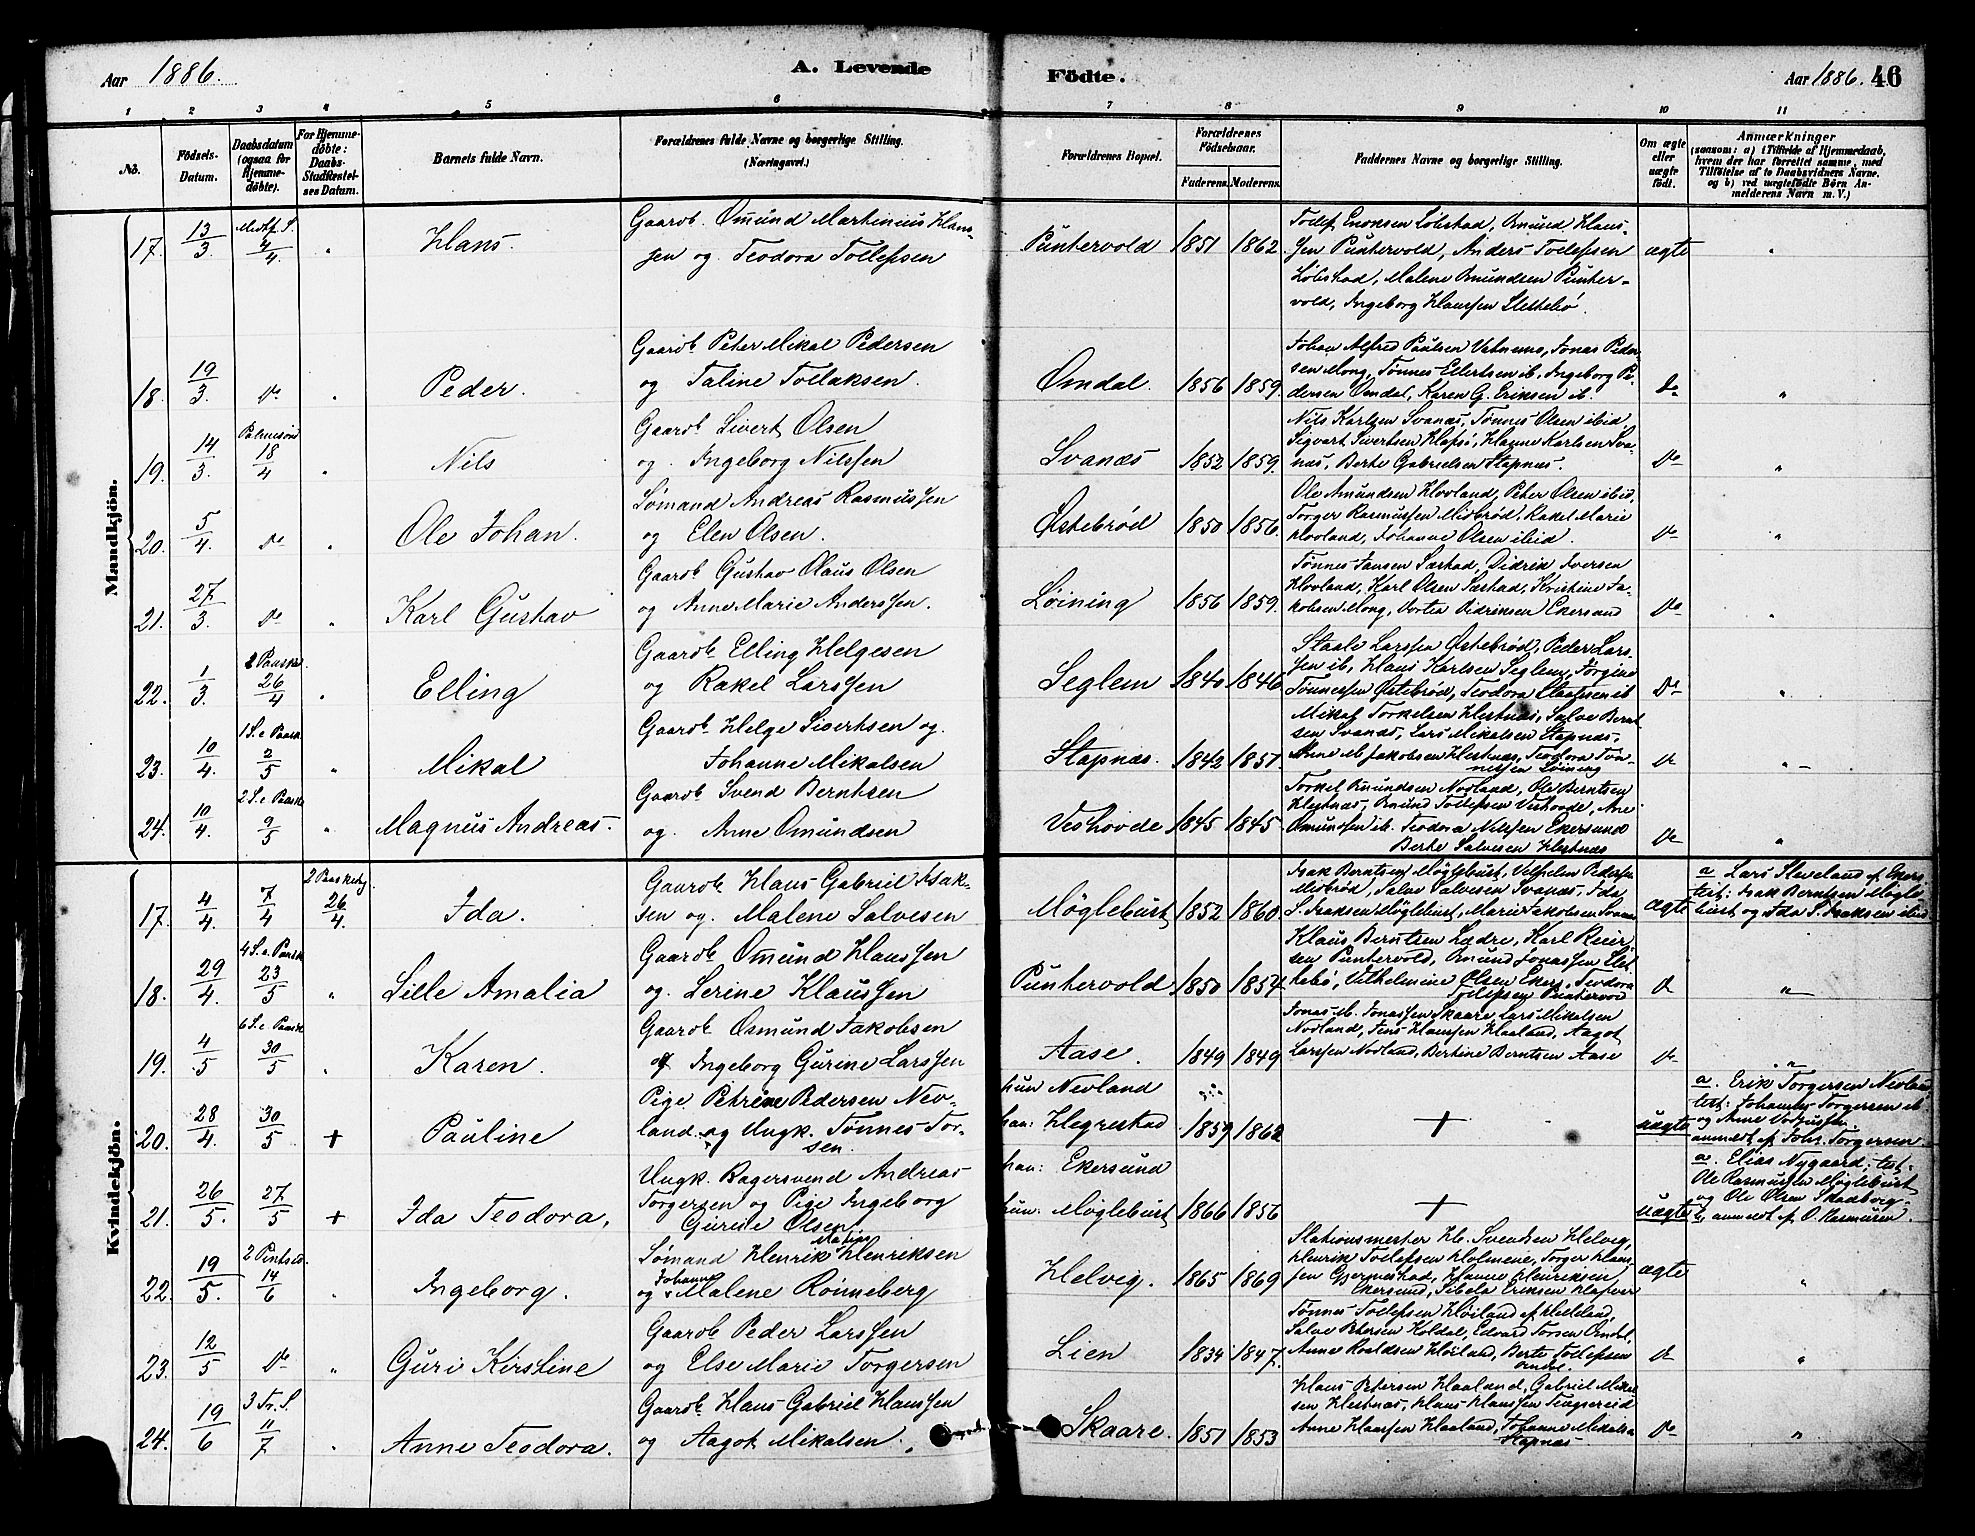 Aar 1886. A. Levende Födte. Aar 1886. 46
1 2 3 4 5 6 7 8 9 10 11
No. Födsels-Datum. Daabsdatum (ogsaa for Hjemmedöbte). For Hjemmedöbte: Daabs-Stadfæstelses Datum. Barnets fulde Navn. Forældrenes fulde Navne og borgerlige Stilling. (Næringsvei.) Forældrenes Bopæl. Forældrenes Födselsaar. Faderens. Moderens. Faddernes Navne og borgerlige Stilling. Om ægte eller uægte födt. Anmærkninger (saasom: a) i Tilfælde af Hjemmedaab, hvem der har forrettet samme, med Tilföielse af to Daabsvidners Navne, og b) ved uægtefödte Börn Anmelderens Navn m. V.)
Mandkjön.
17. 13/3 Midtf. S. 4/4 " Hans. Gaarb. Omund Martinius Hans-
sen og Teodora Tollefsen Puntervold 1851 1862. Tollef Enoksen Løbstad, Omund Klaus-
sen Puntervold, Anders Tollefsen ægte "
Løbstad, Malene Omundsen Punter-
vold, Ingeborg Hanssen Slettebö.
18. 19/3. Do " Peder. Gaarb Peter Mikal Pedersen
og Taline Tollaksen. Omdal. 1856 1859. Johan Alfred Paulsen Vatnemo, Jonas Peder-
sen Mong, Tønnes Eilertsen ib, Ingeborg Pe-
dersen Omdal, Karen G. Eriksen ib. Do "
19. 14/3. Palmesønd 18/4 " Nils Gaarb Sivert Olsen
og Ingeborg Nilssen Svanæs 1852 1859. Nils Karlsen Svanæs, Tønnes Olsen ibid,
Sigvart Sivertsen Hafsö, Hanne Karlsen Sva-
næs, Berte Gabrielsen Stapnæs. Do "
20. 5/4. Do " Ole Johan. Sømand Andreas Rasmussen
og Elen Olsen. Østebrød 1850 1856. Ole Amundsen Hovland, Peter Olsen ibid,
Torger Rasmussen Midbrød, Rakel Marie
Hovland, Johanne Olsen ibid. Do "
21. 27/3. Do " Karl Gustav Gaarb Gustav Olaus Olsen
og Anne Marie Anderssen. Løining 1856 1859. Tønnes Jansen Sæstad, Didrik Iversen
Hovland, Karl Olsen Sæstad, Kristine Ja-
kobsen Mong, Dortea Didriksen Ekersund Do "
22. 1/3 2 Paaske 26/4 " Elling Gaarb Elling Helgesen
og Rakel Larssen Seglem 1840 1846 Staale Larssen Østebrød, Peder Lars-
sen ib, Hans Karlsen Seglem, Torgine
Tønnessen Østebrød, Teodora Staalesen ib Do "
23. 10/4. 1 S. e Paask 2/5 " Mikal Gaarb Helge Sivertsen og
Johanne Mikalsen Stapnæs. 1842 1857. Mikal Torkelsen Hestnæs, Salve Bernt-
sen Svanæs, Lars Mikalsen Stapnæs,
Anne M. Jakobsen Hestnæs, Teodora Tøn-
nessen Løining Do "
24. 10/4. 2 S. e Paaske 9/5 " Magnus Andreas. Gaarb Svend Berntsen
og Anne Omundsen Veshovde 1845 1845. Torkel Omundsen Nodland, Ole Berntsen
Hestnæs, Omund Tollefsen Veshovde, Ane
Omundsen ib. Teodora Nilssen Ekersund
Berte Salvesen Hestnæs Do "
Kvindekjön.
17. 4/4 7/4 2 Paaskedg 26/4. Ida. Gaarb Hans Gabriel Isak-
sen og Malene Salvesen Møglebust 1852 1860. Isak Berntsen Møglebust, Vilhelm Pedersen
Midbrød, Salve Salvesen Svanæs, Ida
S. Isaksen Møglebust, Marie Jakobsen Svanæs ægte a Lars Sleveland af Ekers
test: Isak Berntsen Mögle-
bust og Ida S. Isaksen ibid
18. 29/4. 4 S. e. Paask 23/5 " Lille Amalia Gaarb Omund Claussen
og Serine Klaussen Puntervold 1850 1854 Klaus Berntsen Lædre, Karl Reier-
sen Puntervold, Omund Jonassen Slet-
tebö, Vilhelmine Olsen Ekers, Teodora
Tollefsen Puntervold Do "
19. 4/5 6 S. e Paask 30/5 " Karen. Gaarb Osmund Jakobsen
og Ingeborg Gurine Larssen Aase. 1849 1849 Jonas M. Jonassen Skaare, Lars Mikalsen
Nodland, Jens Hanssen Haaland, Aagot
Larssen Nodland, Bertine Berntsen Aase Do "
20. 28/4. 30/5 + Pauline Pige Petrine Pedersen Nev-
land og Ungk. Tønnes Tor-
sen. hun Nevland
han: Hegrestad 1859 1862 + uægte a. Erik Torgersen Nevland
test: Johannes Torgersen ib
og Anne
anmeldt af Johs. Torgersen.
21. 26/5. 27/5 + Ida Teodora, Ungk. Bagersvend Andreas
Torgersen og Pige Ingeborg
Gurine Olsen han: Ekersund
hun: Møglebust 1866 1856 + uægte a. Elias Nygaard; test.
Ole Rasmussen Møglebust
og Ole Olsen Skadberg
b. anmeldt af O. Rasmussen.
22. 19/5. 2 Pintsed. 14/6 " Ingeborg. Sømand Henrik Martin Henriksen
og Johanne Malene Rönneberg Helvig. 1865 1869 Stationsmester H. Svendsen Helvig,
Henrik Tollefsen Holmene, Torger Hans-
sen Gjermestad, Hanne Henriksen
Ekersund, Sibela Eriksen ægte "
23. 12/5 Do " Guri Kirstine Gaarb Peder Larssen
og Else Marie Torgersen Lien 1834 1847. Tønnes Tollefsen Høiland af Helleland,
Salve Petersen Koldal, Edvard Torsen Omdal,
Anne Roaldsen Høiland, Berte Tollefsen
Omdal. Do "
24. 19/6 3 Tr. S. 11/7 " Anne Teodora. Gaarb Hans Gabriel Hanssen
og Aagot Mikalsen. Skaare. 1851 1853 Hans Petersen Haaland, Gabriel Mikal-
sen Hestnæs, Hans Hanssen Tengsereid
Anne Hanssen Haaland, Johanne Mikalsen
Stapnæs. Do "